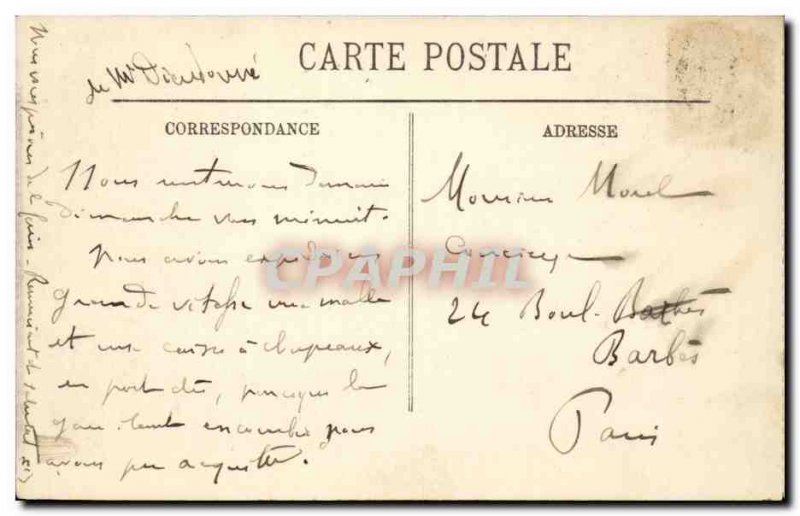 CARTE POSTALE
de Mr Dieudonné
CORRESPONDANCE
ADRESSE
Nous rentrerons demain
dimanche vers minuit.
Nous avons expédié en
grande vitesse une malle
et une caisse à chapeaux,
en port dû, puisque la
gare étant encombrée nous
avons pu acquitter.
Monsieur Morel
Concierge
24 Boul. Barbès
Barbès
Paris
Nous vous prions de le faire - Remerciements et salutations
CPAPHIL